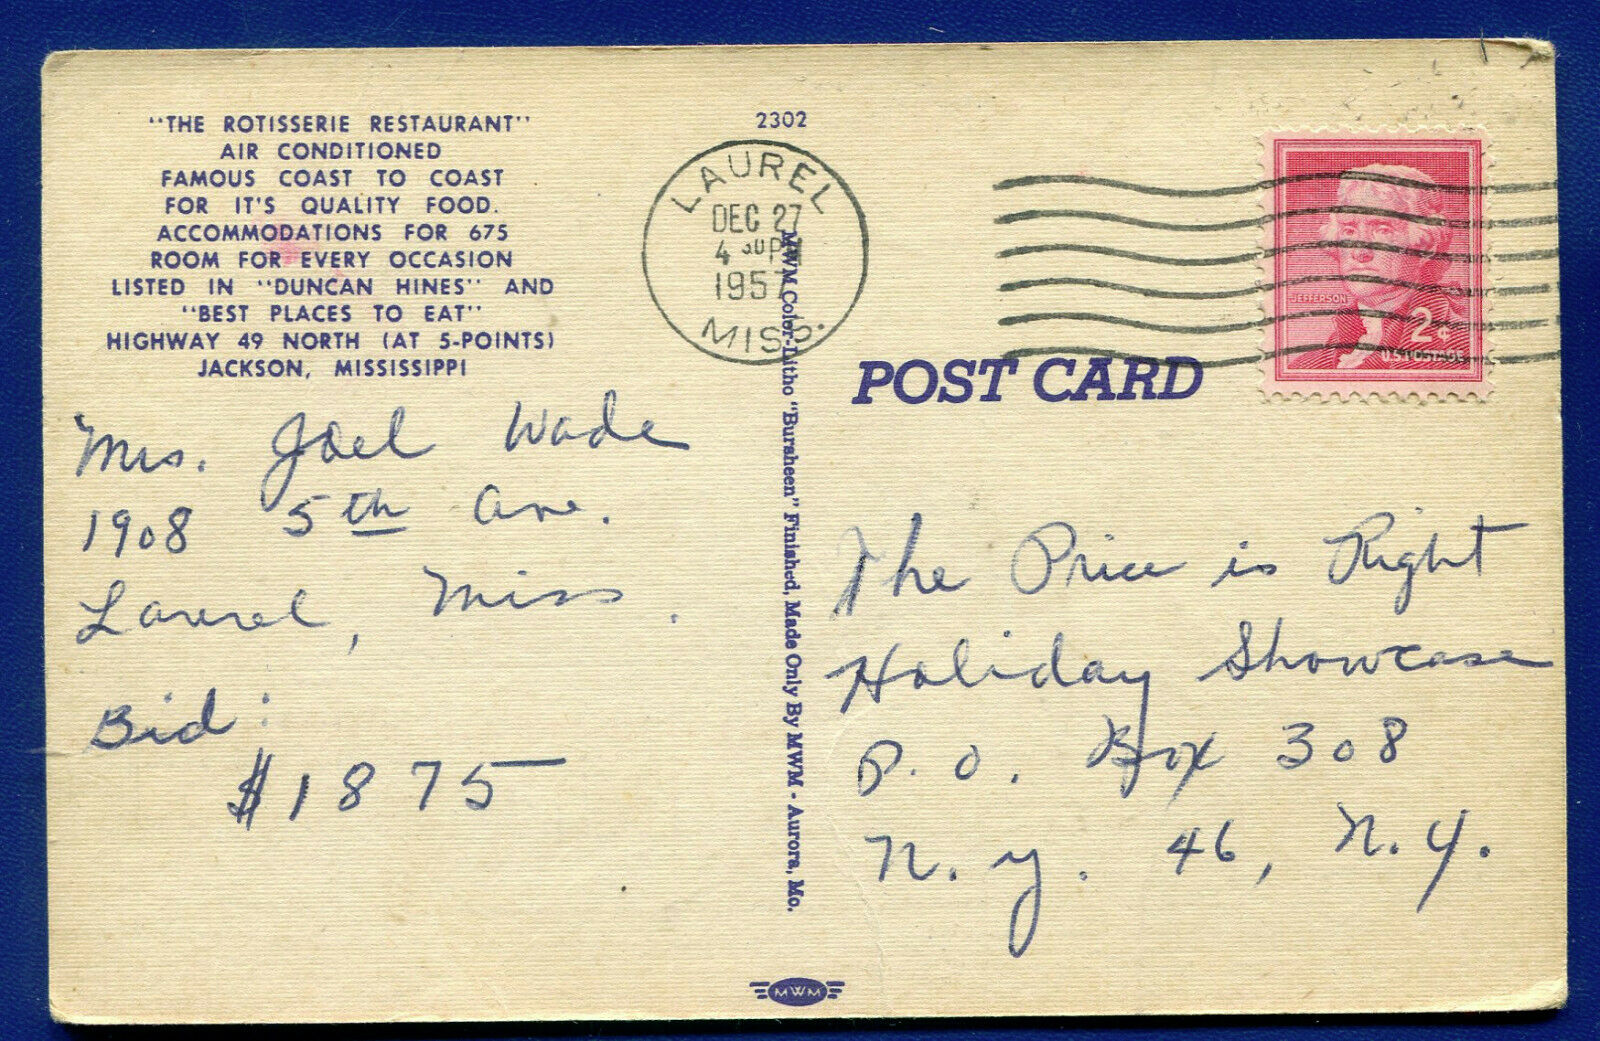 "THE ROTISSERIE RESTAURANT"
AIR CONDITIONED
FAMOUS COAST TO COAST
FOR IT'S QUALITY FOOD.
ACCOMMODATIONS FOR 675
ROOM FOR EVERY OCCASION
LISTED IN "DUNCAN HINES" AND
"BEST PLACES TO EAT"
HIGHWAY 49 NORTH (AT 5-POINTS)
JACKSON, MISSISSIPPI
Mrs. Joel Wade
1908 5th Ave.
Laurel, Miss.
Bid:
$1875
2302
LAUREL
DEC 27
4 30 PM
1957
MISS.
MWM Color-Litho "Bursheen" Finished, Made Only By MWM - Aurora, Mo.
MWM
JEFFERSON
2¢
U.S. POSTAGE
POST CARD
The Price is Right
Holiday Showcase
P.O. Box 308
N.Y. 46, N.Y.